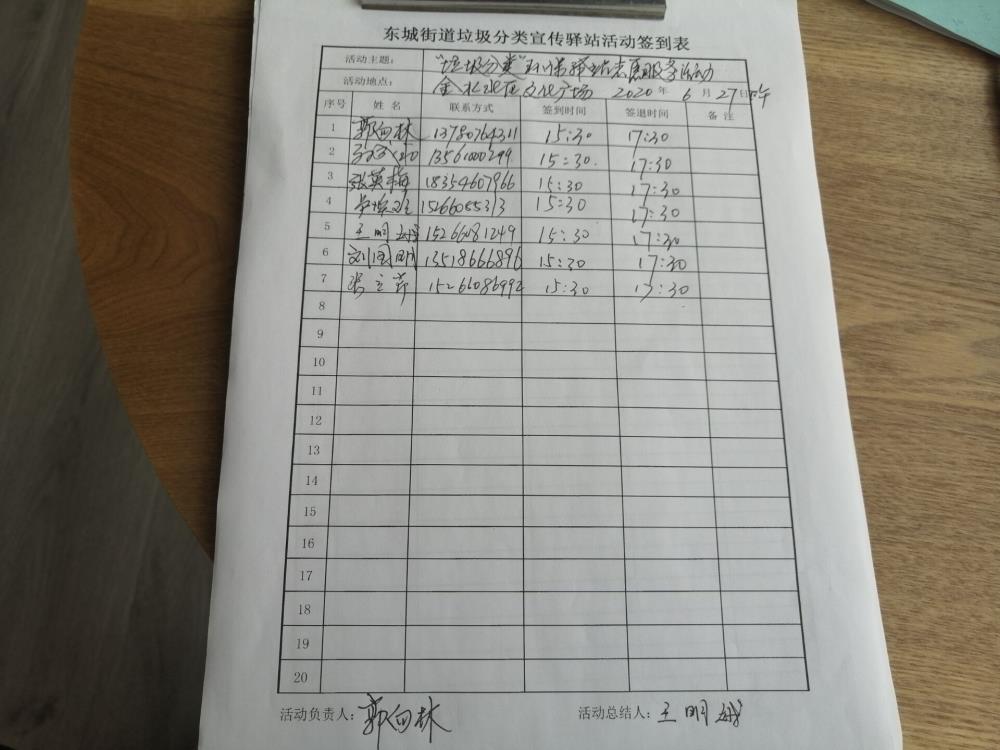 东城街道垃圾分类宣传驿站活动签到表
活动主题： "垃圾分类" 志愿服务活动
活动地点： 金水 区文化广场 2020年6月27日
序号 姓名 联系方式 签到时间 签退时间 备注
1 郭向林 13780764311 15:30 17:30
2 13561000299 15:30 17:30
3 张英梅 18354607966 15:30 17:30
4 15266085313 15:30 17:30
5 王明 15266081249 15:30 17:30
6 刘国明 13518666896 15:30 17:30
7 张立 15266086992 15:30 17:30
8
9
10
11
12
13
14
15
16
17
18
19
20
活动负责人：郭向林 活动总结人：王明